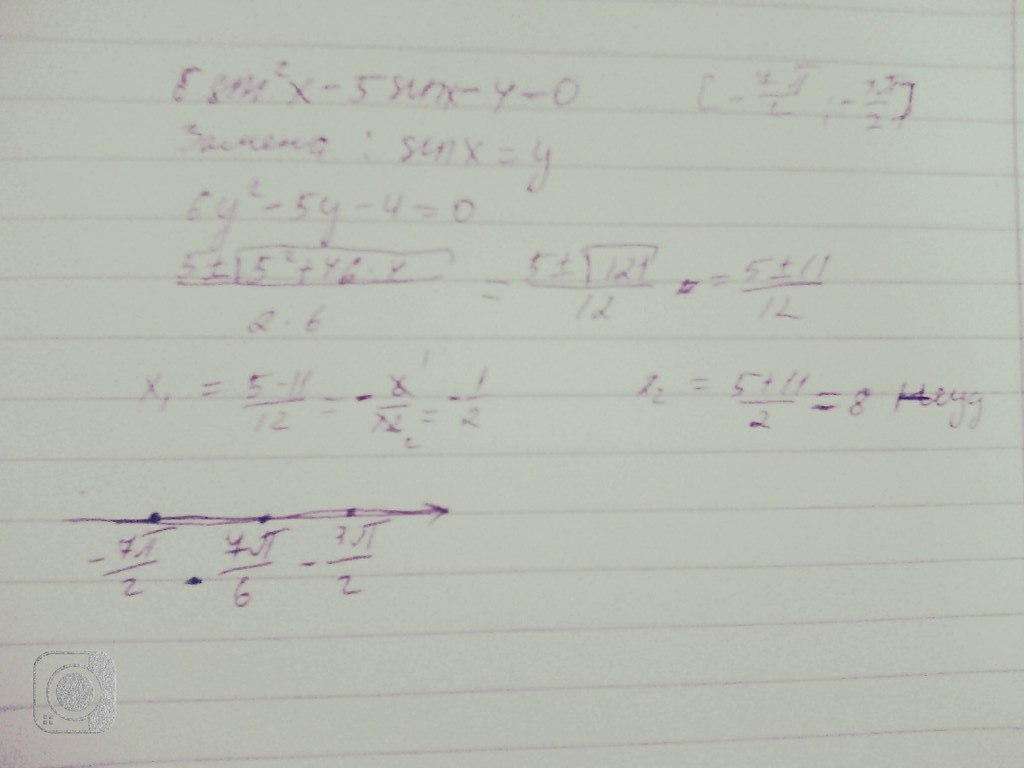 6 sin²x - 5 sinx - 4 = 0 [-7π/2 ; -3π/2]
Замена : sinx = y
6y² - 5y - 4 = 0
(5 ± √(5² + 4·6·4))/(2·6) = (5 ± √121)/12 = (5 ± 11)/12
x₁ = (5-11)/12 = -6/12 = -1/2 x₂ = (5+11)/2 = 8
-7π/2 7π/6 -3π/2